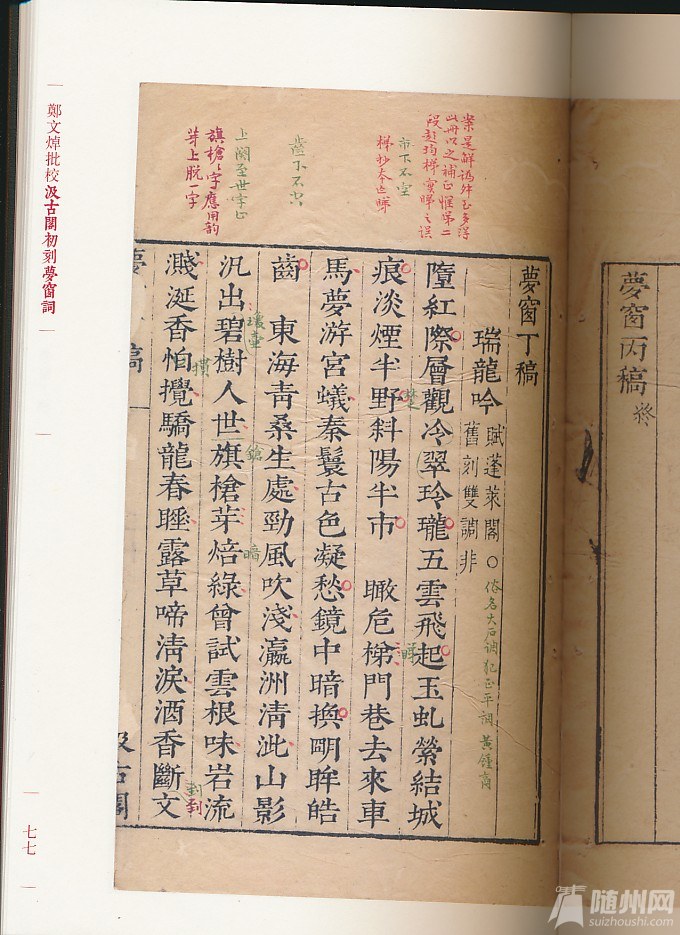 夢窗丙稿 終
夢窗丁稿
瑞龍吟 賦蓬萊閣〇俗名大石調犯正平調黃鍾商
舊刻雙調非
墮紅際層觀冷翠玲瓏五雲飛起玉虬縈結城
痕淡煙半野斜陽半市 瞰危梯門巷去來車
馬夢游宮蟻秦鬟古色凝愁鏡中暗換明眸皓
齒 東海青桑生處勁風吹淺瀛洲清泚山影
汎出碧樹人世旗槍芽焙綠曾試雲根味岩流
濺涎香怕攪驕龍春睡露草啼清淚酒香斷文
汲古閣
市下不空
梯抄本作睇
齒下不空
上闋至世字止
旗槍槍字應用韵
芽上脫一字
楚
睇
瓊壺
鎗
暗
攪
到
鄭文焯批校汲古閣初刻夢窗詞
七七
随州网
suizhoushi.com